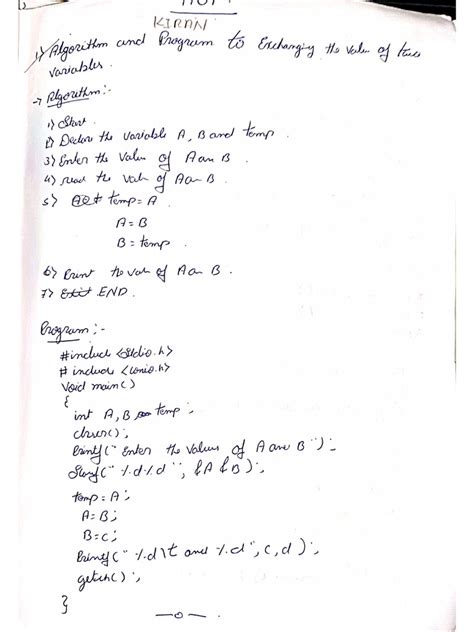 KIRAN
1) Algorithm and Program to Exchanging the value of two
variables.
→ Algorithm:-
1) Start
2) Declare the variable A, B and temp.
3) Enter the Value of A an B
4) read the Valu of A an B.
5) temp = A
A = B
B = temp.
6) Print the val of A an B.
7) Exit END.
Program:-
#include <stdio.h>
#include <conio.h>
Void main()
{
int A, B temp;
clrscr();
Printf(" Enter the Values of A an B ");
Scanf(" %d%d ", &A &B);
temp = A;
A = B;
B = c;
Printf(" %d\t and %d", c, d );
getch();
}
—o—